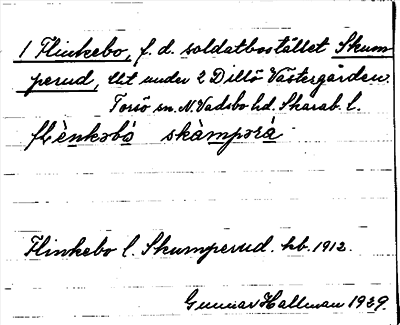 1 Flinkebo, f. d. soldatbostället Skum-
perud, lht under 2 Dillö Västergården.
Torsö sn. N. Vadsbo hd. Skarab. l.
flènkəbò skàmpərá
Flinkebo l. Skumperud. hb. 1912.
Gunnar Hallman 1939.